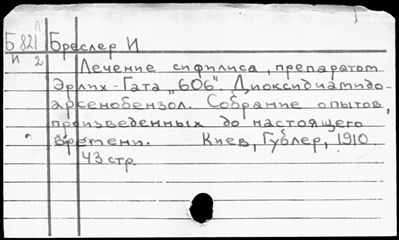 Б 821 Бреслер И
И 2 Лечение сифилиса, препаратом
Эрлих-Гата "606". Диоксидиамидо-
арсенобензол. Собрание опытов,
произведенных до настоящего
времени. Киев, Гублер, 1910.
43 стр.